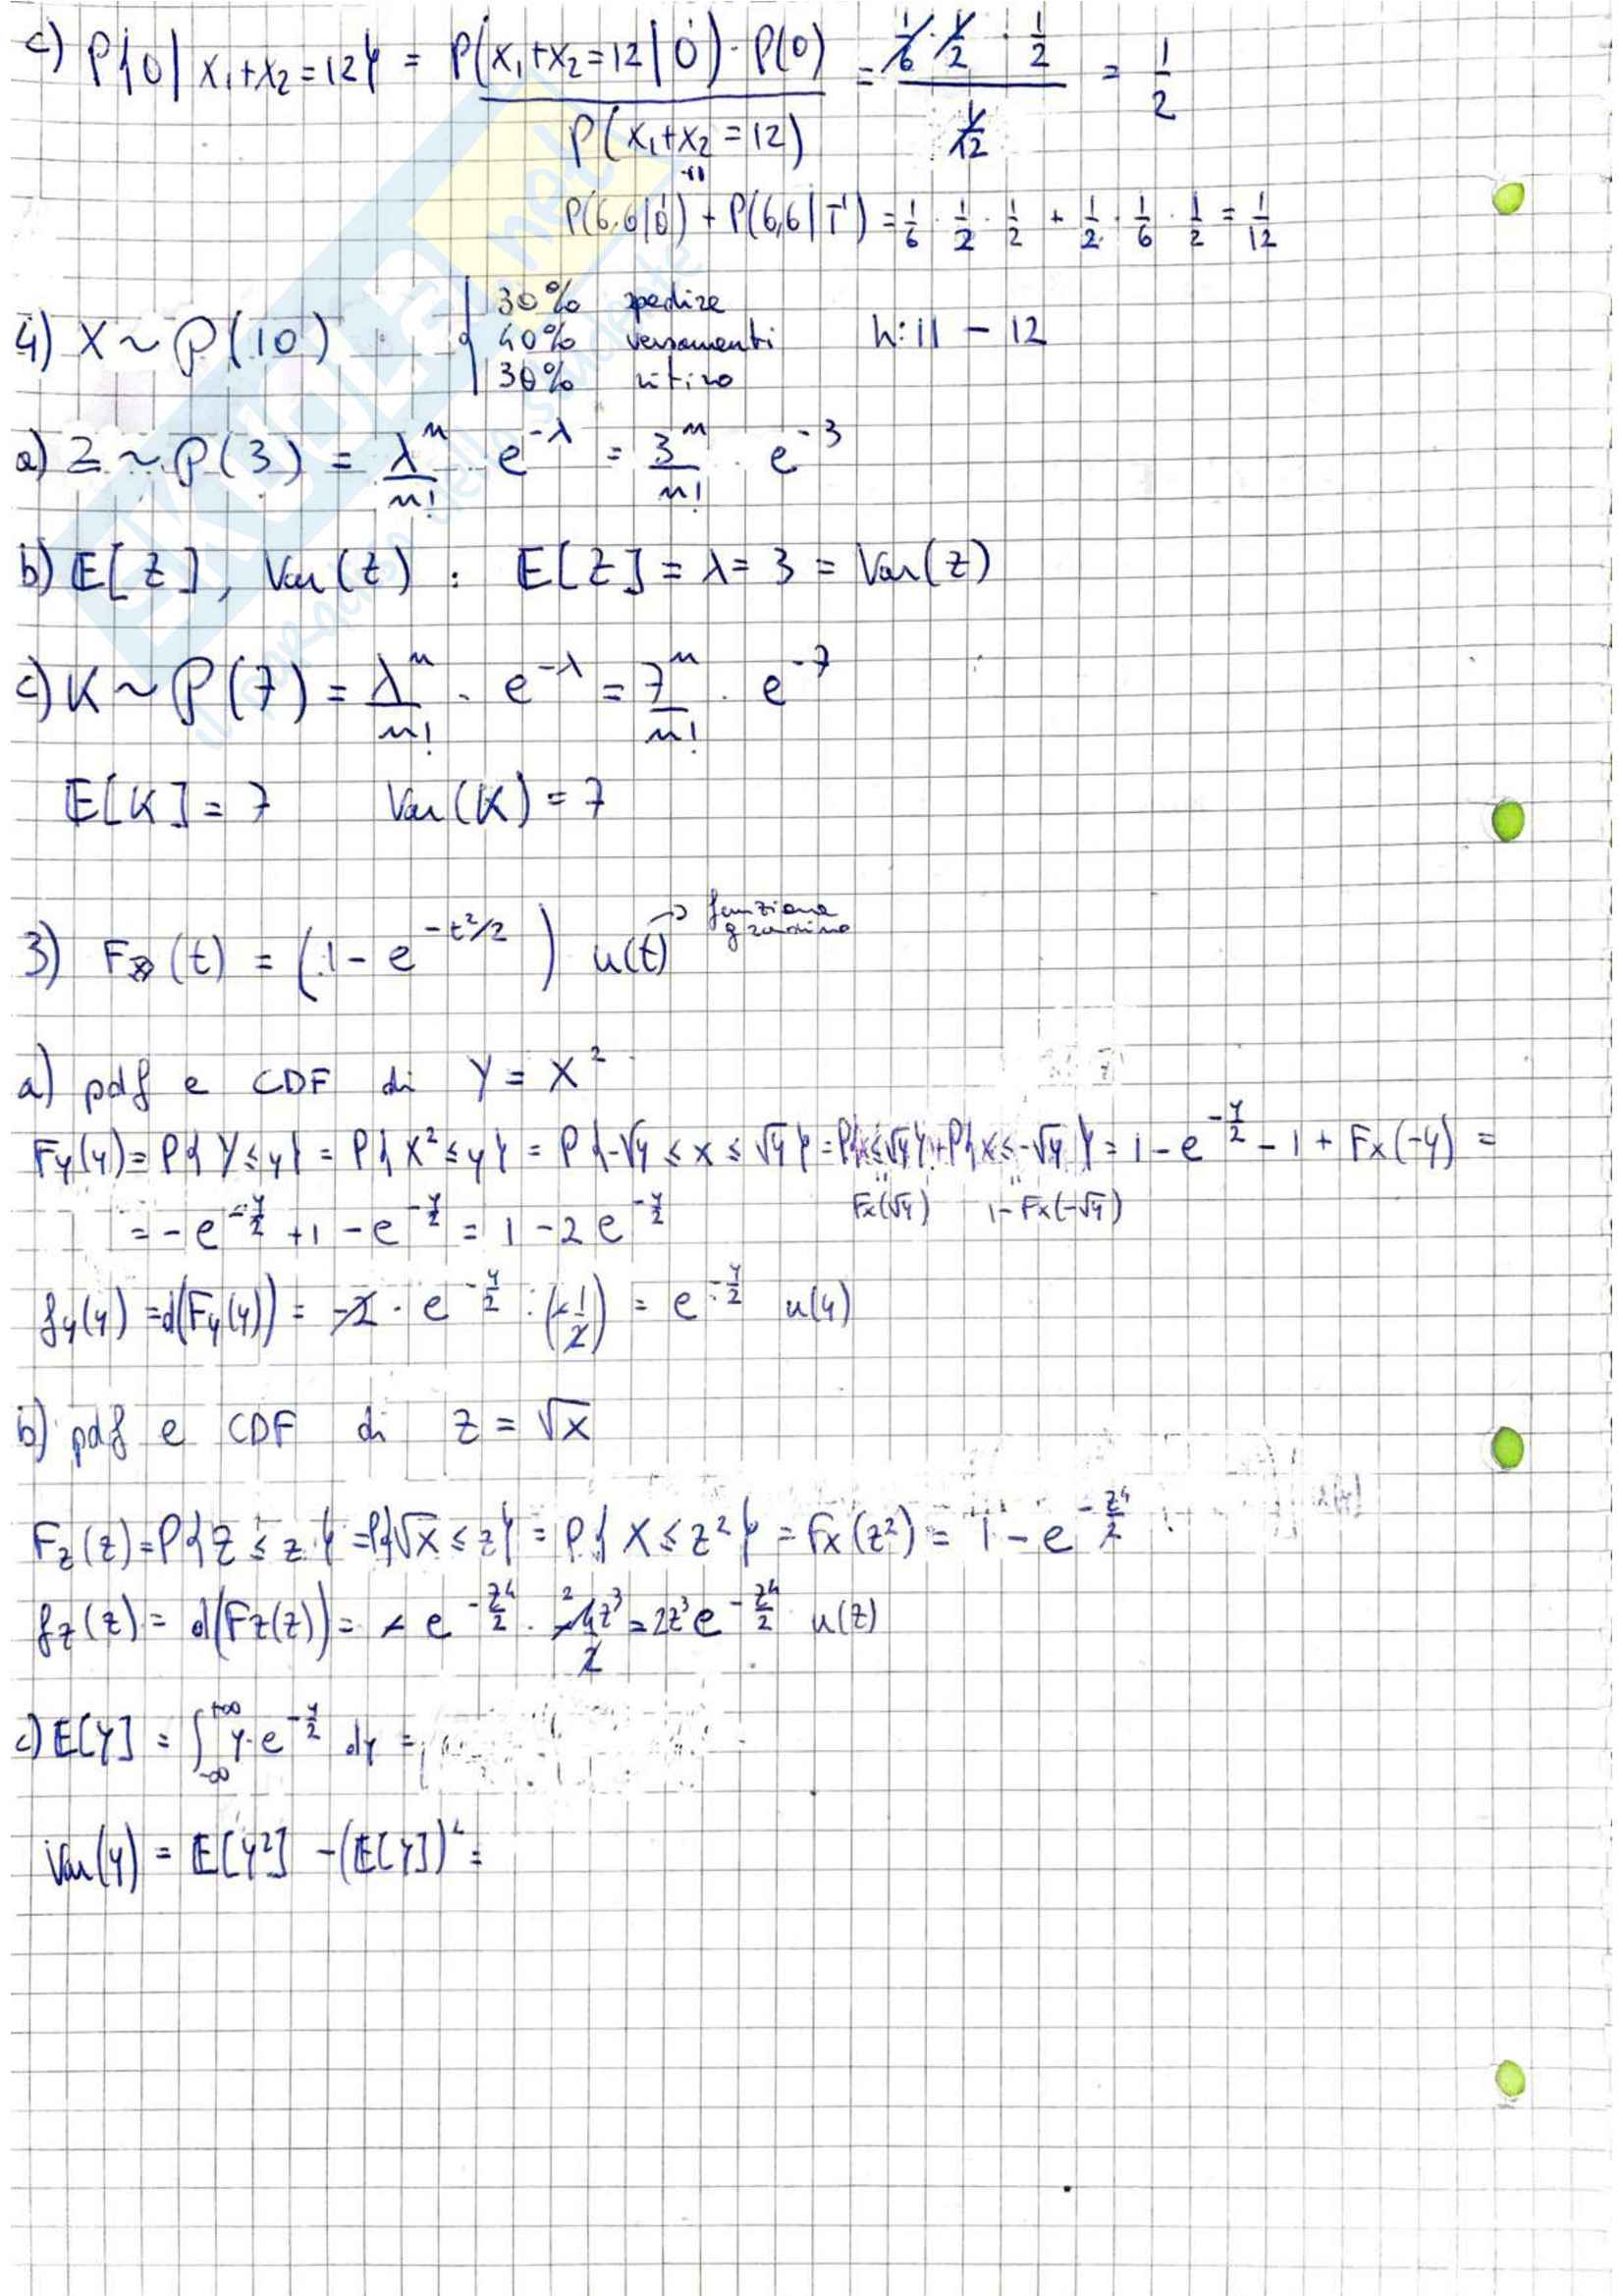 c) P{O| x₁+x₂=12} = P(x₁+x₂=12|O)·P(O) / P(x₁+x₂=12) = 1/6·1/2·1/2 / 1/12 = 1/2
P(6,6|O) + P(6,6|T) = 1/6 · 1/2 · 1/2 + 1/2 · 1/6 · 1/2 = 1/12
30% spedire
4) X ~ P(10) { 40% versamenti h: 11 - 12
30% ritiro
a) Z ~ P(3) = λⁿ/n! e^-λ = 3ⁿ/n! · e^-3
b) E[Z], Var(Z) : E[Z] = λ = 3 = Var(Z)
c) K ~ P(7) = λⁿ/n! · e^-λ = 7ⁿ/n! · e^-7
E[K] = 7 Var(K) = 7
3) Fx(t) = (1 - e^(-t²/2)) u(t) → funzione gradino
a) pdf e CDF di Y = X²
Fy(y) = P{Y≤y} = P{X²≤y} = P{-√y ≤ x ≤ √y} = P{x≤√y}+P{x≤-√y} = 1 - e^(-y/2) - 1 + Fx(-y) =
Fx(√y) 1-Fx(-√y)
= -e^(-y/2) + 1 - e^(-y/2) = 1 - 2e^(-y/2)
fy(y) = d(Fy(y)) = -2 · e^(-y/2) · (-1/2) = e^(-y/2) u(y)
b) pdf e CDF di Z = √x
Fz(z) = P{Z≤z} = P{√x ≤ z} = P{X≤z²} = Fx(z²) = 1 - e^(-z⁴/2)
fz(z) = d(Fz(z)) = - e^(-z⁴/2) · -4z³/2 = 2z³e^(-z⁴/2) u(z)
c) E[Y] = ∫_-∞^+∞ y·e^(-y/2) dy =
Var(y) = E[y²] - (E[y])² =